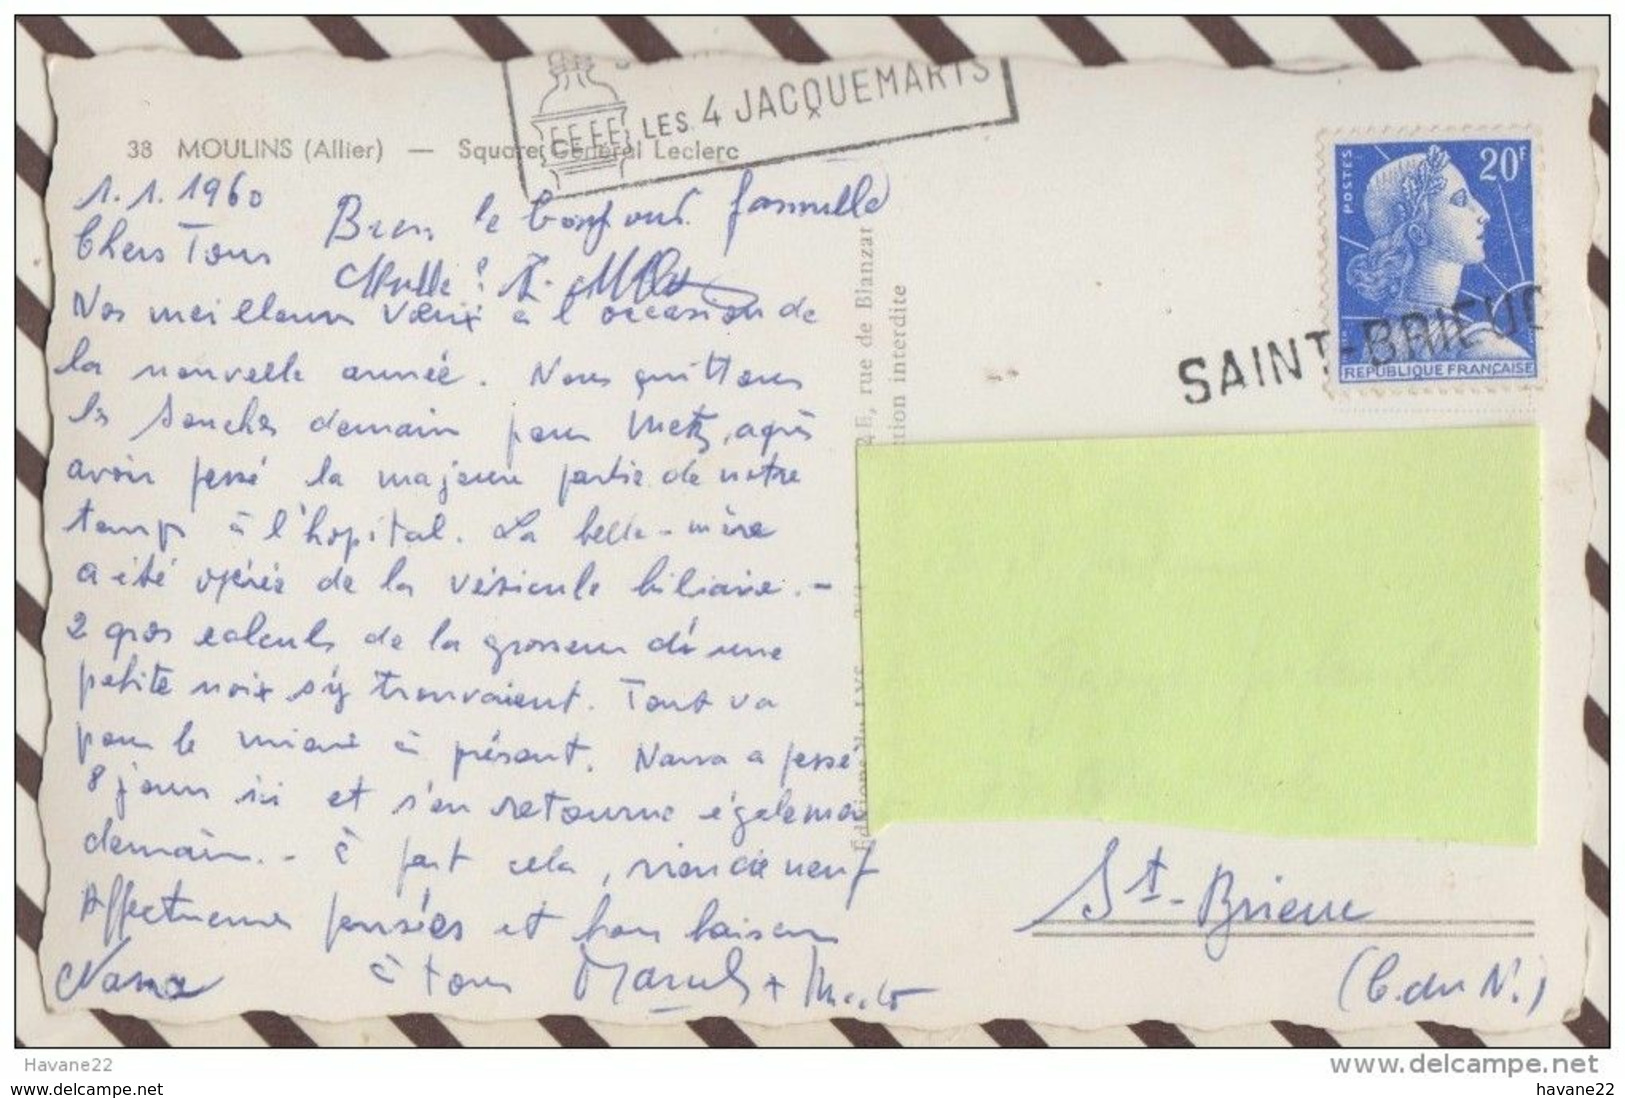 LES 4 JACQUEMARTS
38 MOULINS (Allier) — Square Général Leclerc
1.1.1960
Chers Tous
Bien le bonjour famille
Nos meilleurs vœux à l'occasion de
la nouvelle année. Nous quittons
les Souches demain pour Metz, après
avoir passé la majeure partie de notre
temps à l'hopital. La belle-mère
a été opérée de la vésicule biliaire.-
2 gros calculs de la grosseur d'une
petite noix s'y trouvaient. Tout va
pour le mieux à présent. Nana a passé
8 jours ici et s'en retourne égaleme
demain.- à part cela, rien de neuf
Affectueuses pensées et bons baisers
à tous Marcel +
Nana
POSTES
20F
REPUBLIQUE FRANÇAISE
SAINT-BRIEUC
rue de Blanzat
interdite
St-Brieuc
(C. du N.)
Havane22
www.delcampe.net
havane22
havane22